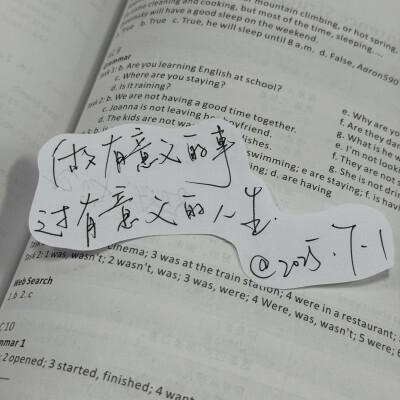 mountain climbing, or hot spring.
some cleaning and cooking, but most of the time, sleeping....
will have a good sleep on the weekend.
b. True c. True, he will sleep until 8 a.m. d. False, Aaron590
b. Are you learning English at school?
c. Where are you staying?
d. Is it raining?
b. We are not having a good time together.
c. Joanna is not leaving her boyfriend.
d. The kids are not
e. Why are you
f. Are they
g. What is he
e. I'm not look
f. They are not s
g. She is not
swimming; e are staying; f. is havi
d. are having
做有意义的事
过有意义的人生.
@2025.7.1
cinema; 3 was at the train station; 4 were in a restaurant;
Task 2: 1 was, wasn't; 2 wasn't, was; 3 was, were; 4 Were, was, wasn't; 5 were; 6
Web Search
1.b 2.c
C 10
2 opened; 3 started, finished; 4 want